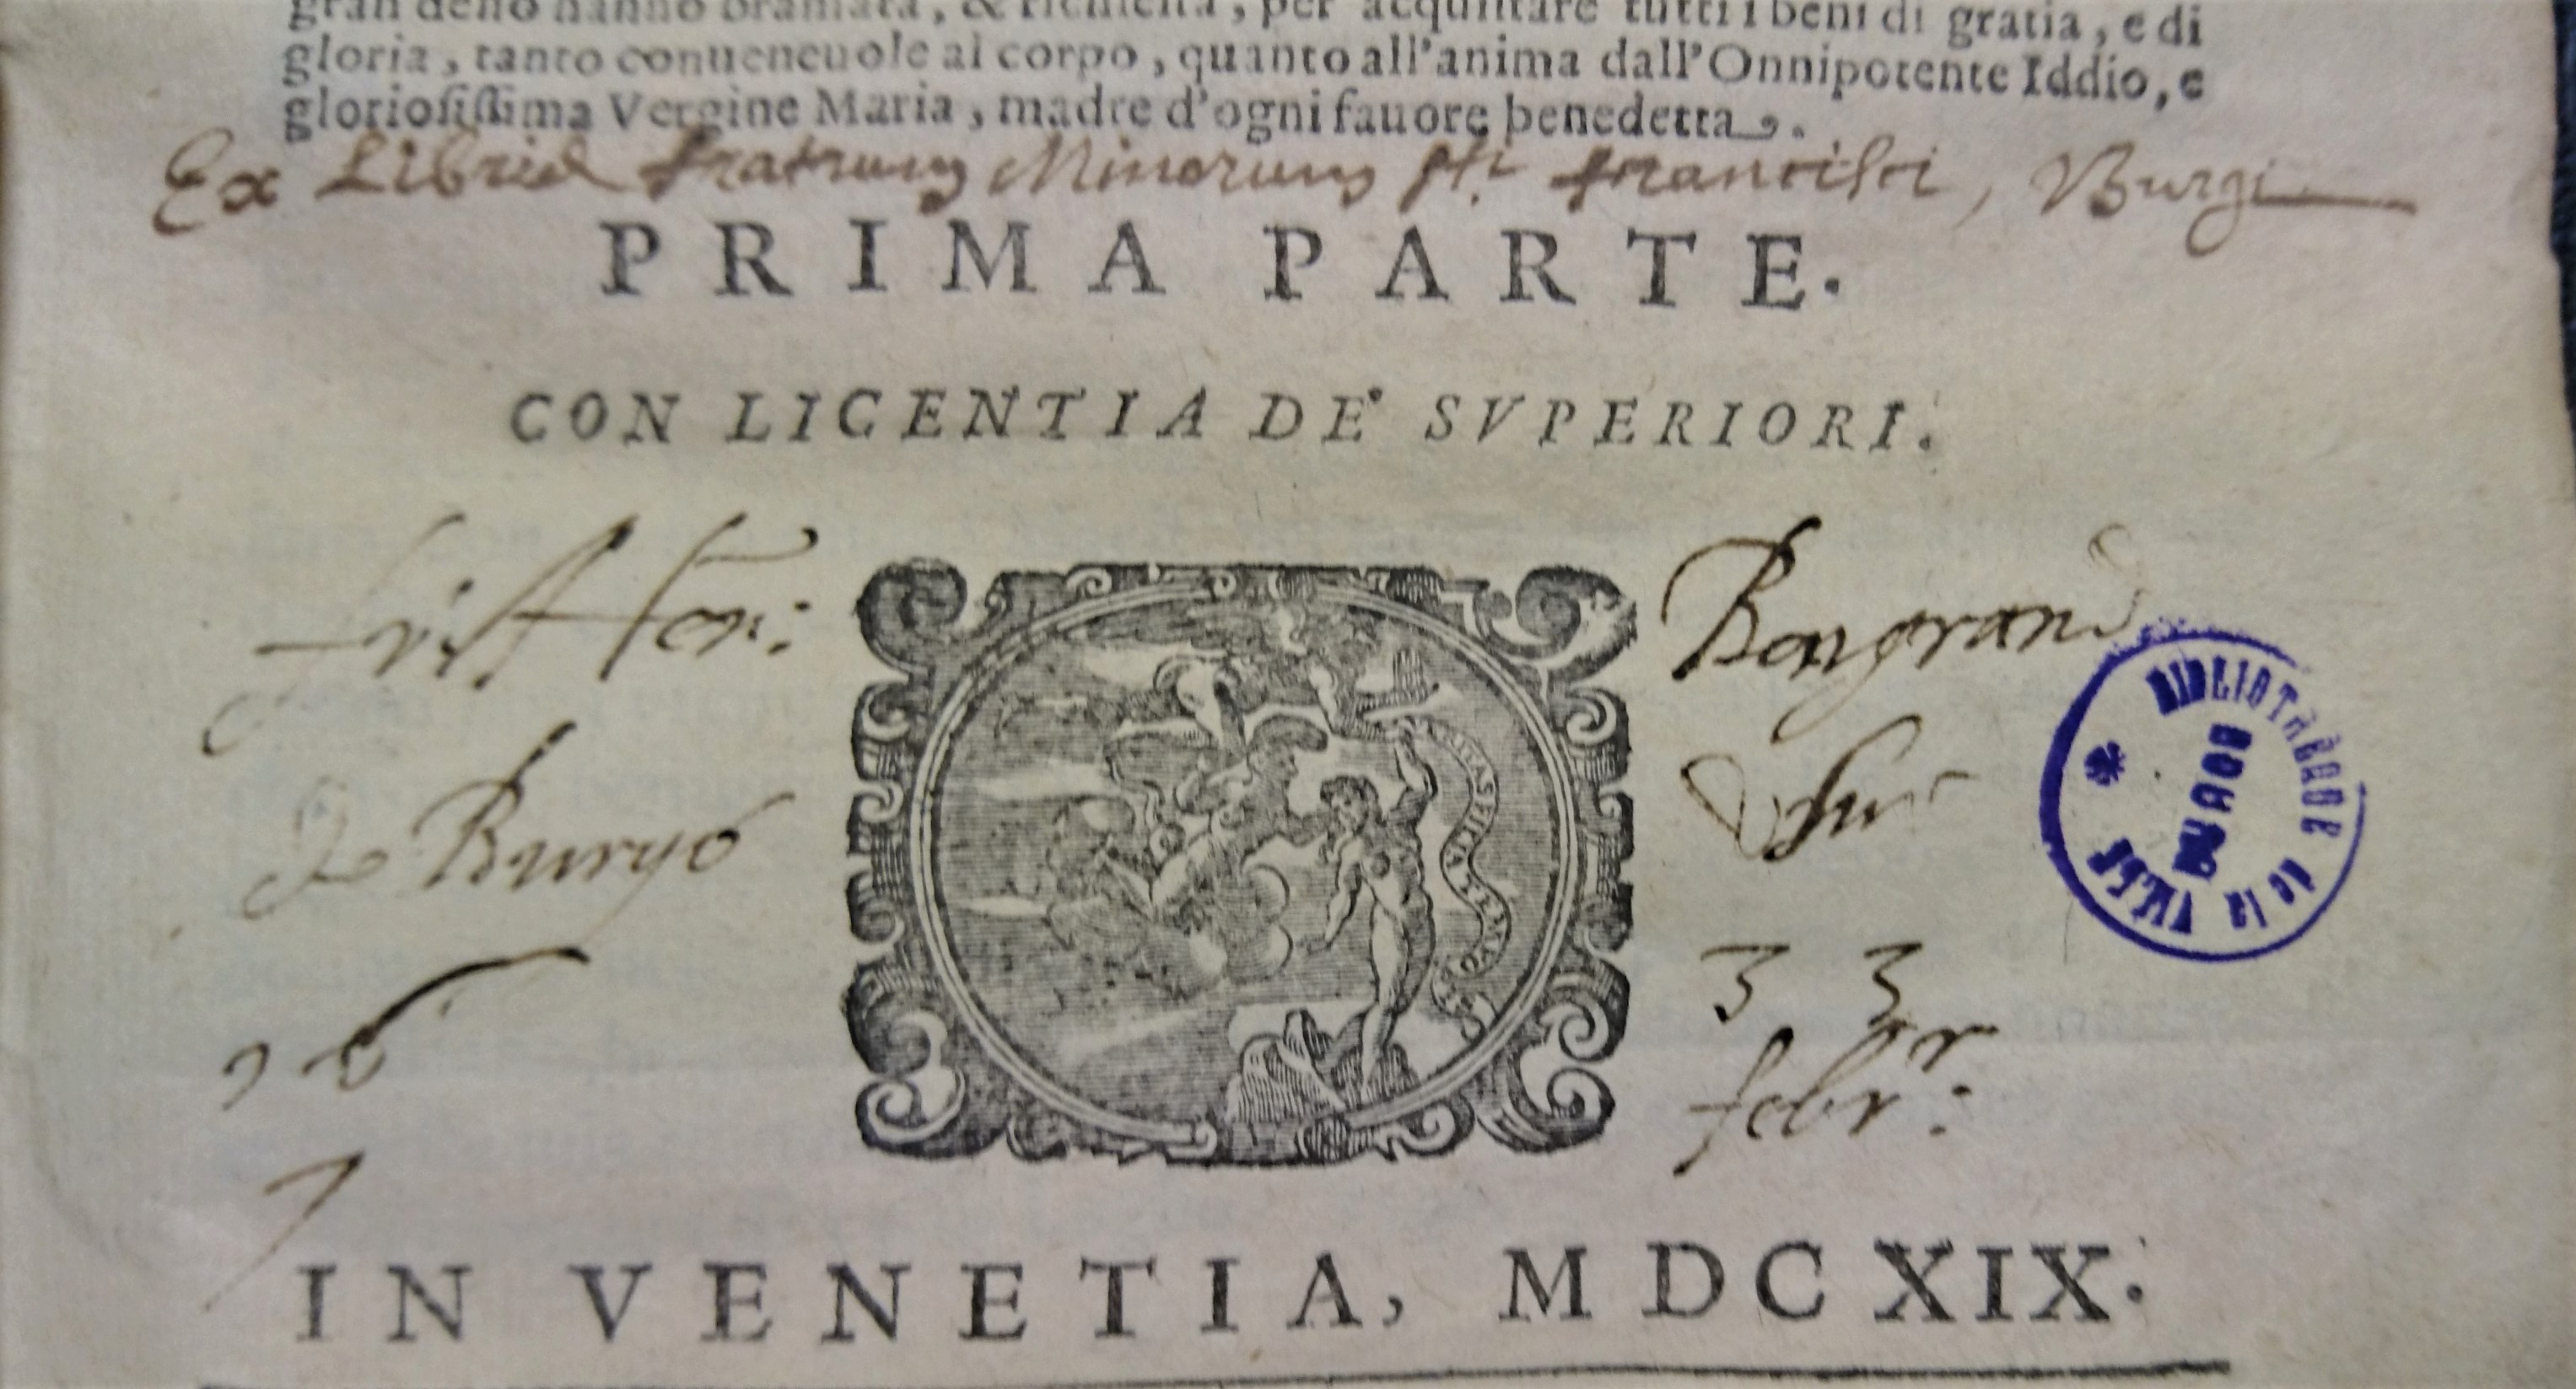 gran desio hanno bramata, & richiesta, per acquistare tutti i beni di gratia, e di
gloria, tanto conueneuole al corpo, quanto all'anima dall'Onnipotente Iddio, e
gloriosissima Vergine Maria, madre d'ogni fauore benedetta.
Ex Libris fratrum Minorum sti francisci, Burgi
PRIMA PARTE.
CON LICENTIA DE' SVPERIORI.
de Burgo
33
febr:
BIBLIOTHÈQUE de la VILLE
IN VENETIA, MDCXIX.